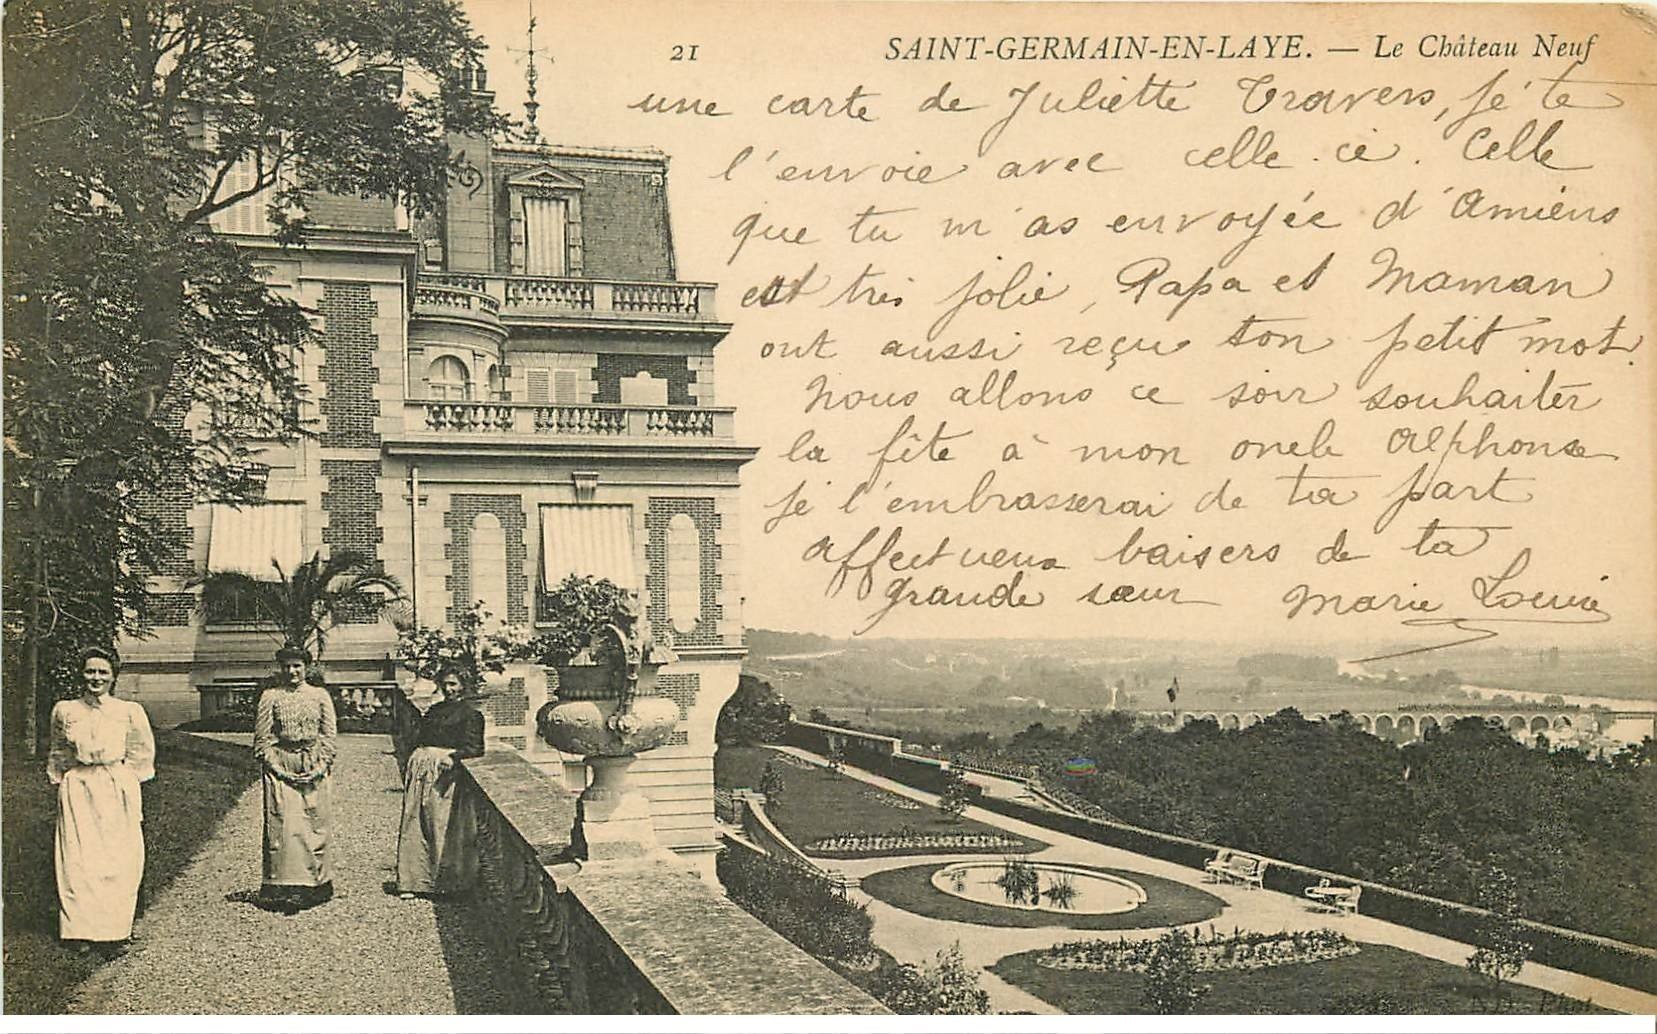 21 SAINT-GERMAIN-EN-LAYE. — Le Château Neuf
une carte de Juliette Travers, je te
l'envoie avec celle-ci. Celle
que tu m'as envoyée d'Amiens
est très jolie, Papa et Maman
ont aussi reçu ton petit mot.
Nous allons ce soir souhaiter
la fête à mon oncle Alphonse
je l'embrasserai de ta part
affectueux baisers de ta
grande sœur Marie Louise
N.D. Phot.